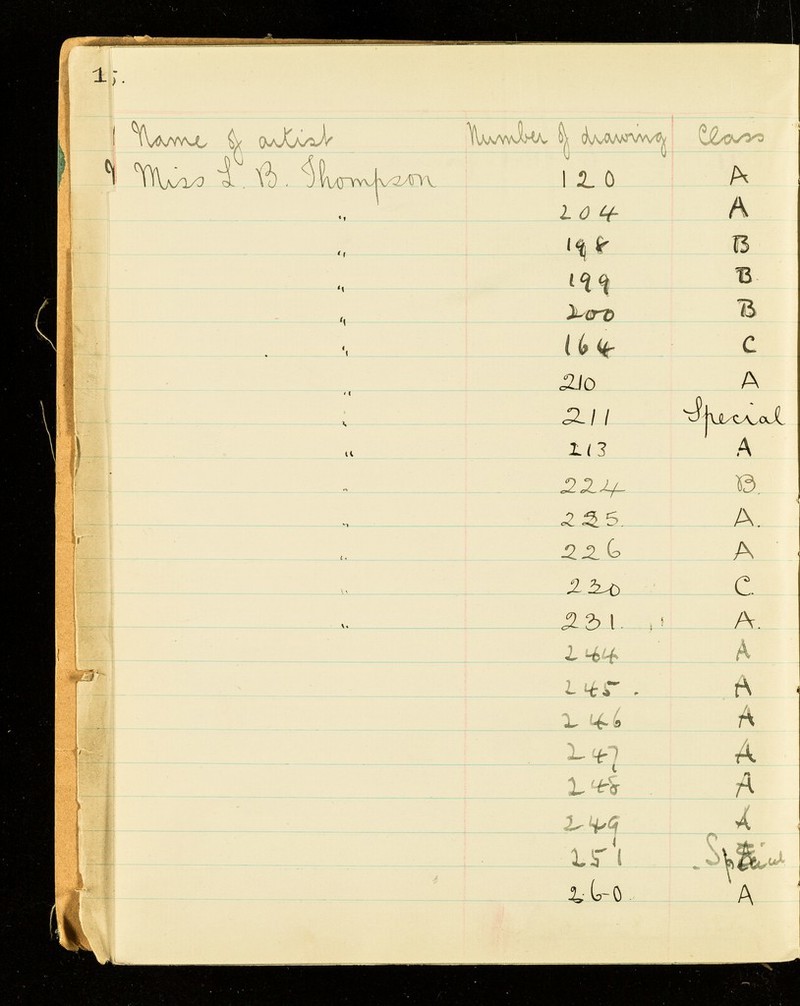 15.
Name of artist Number of drawing Class
Miss L. B. Thompson 120 A
" 204 A
" 198 B
" 199 B
" 200 B
" 164 C
" 210 A
" 211 Special
" 213 A
" 224 B.
" 225. A.
" 226 A
" 230 C.
" 231. A.
244 A
245. A
246 A
247 A
248 A
249 A
251 Special
260 A